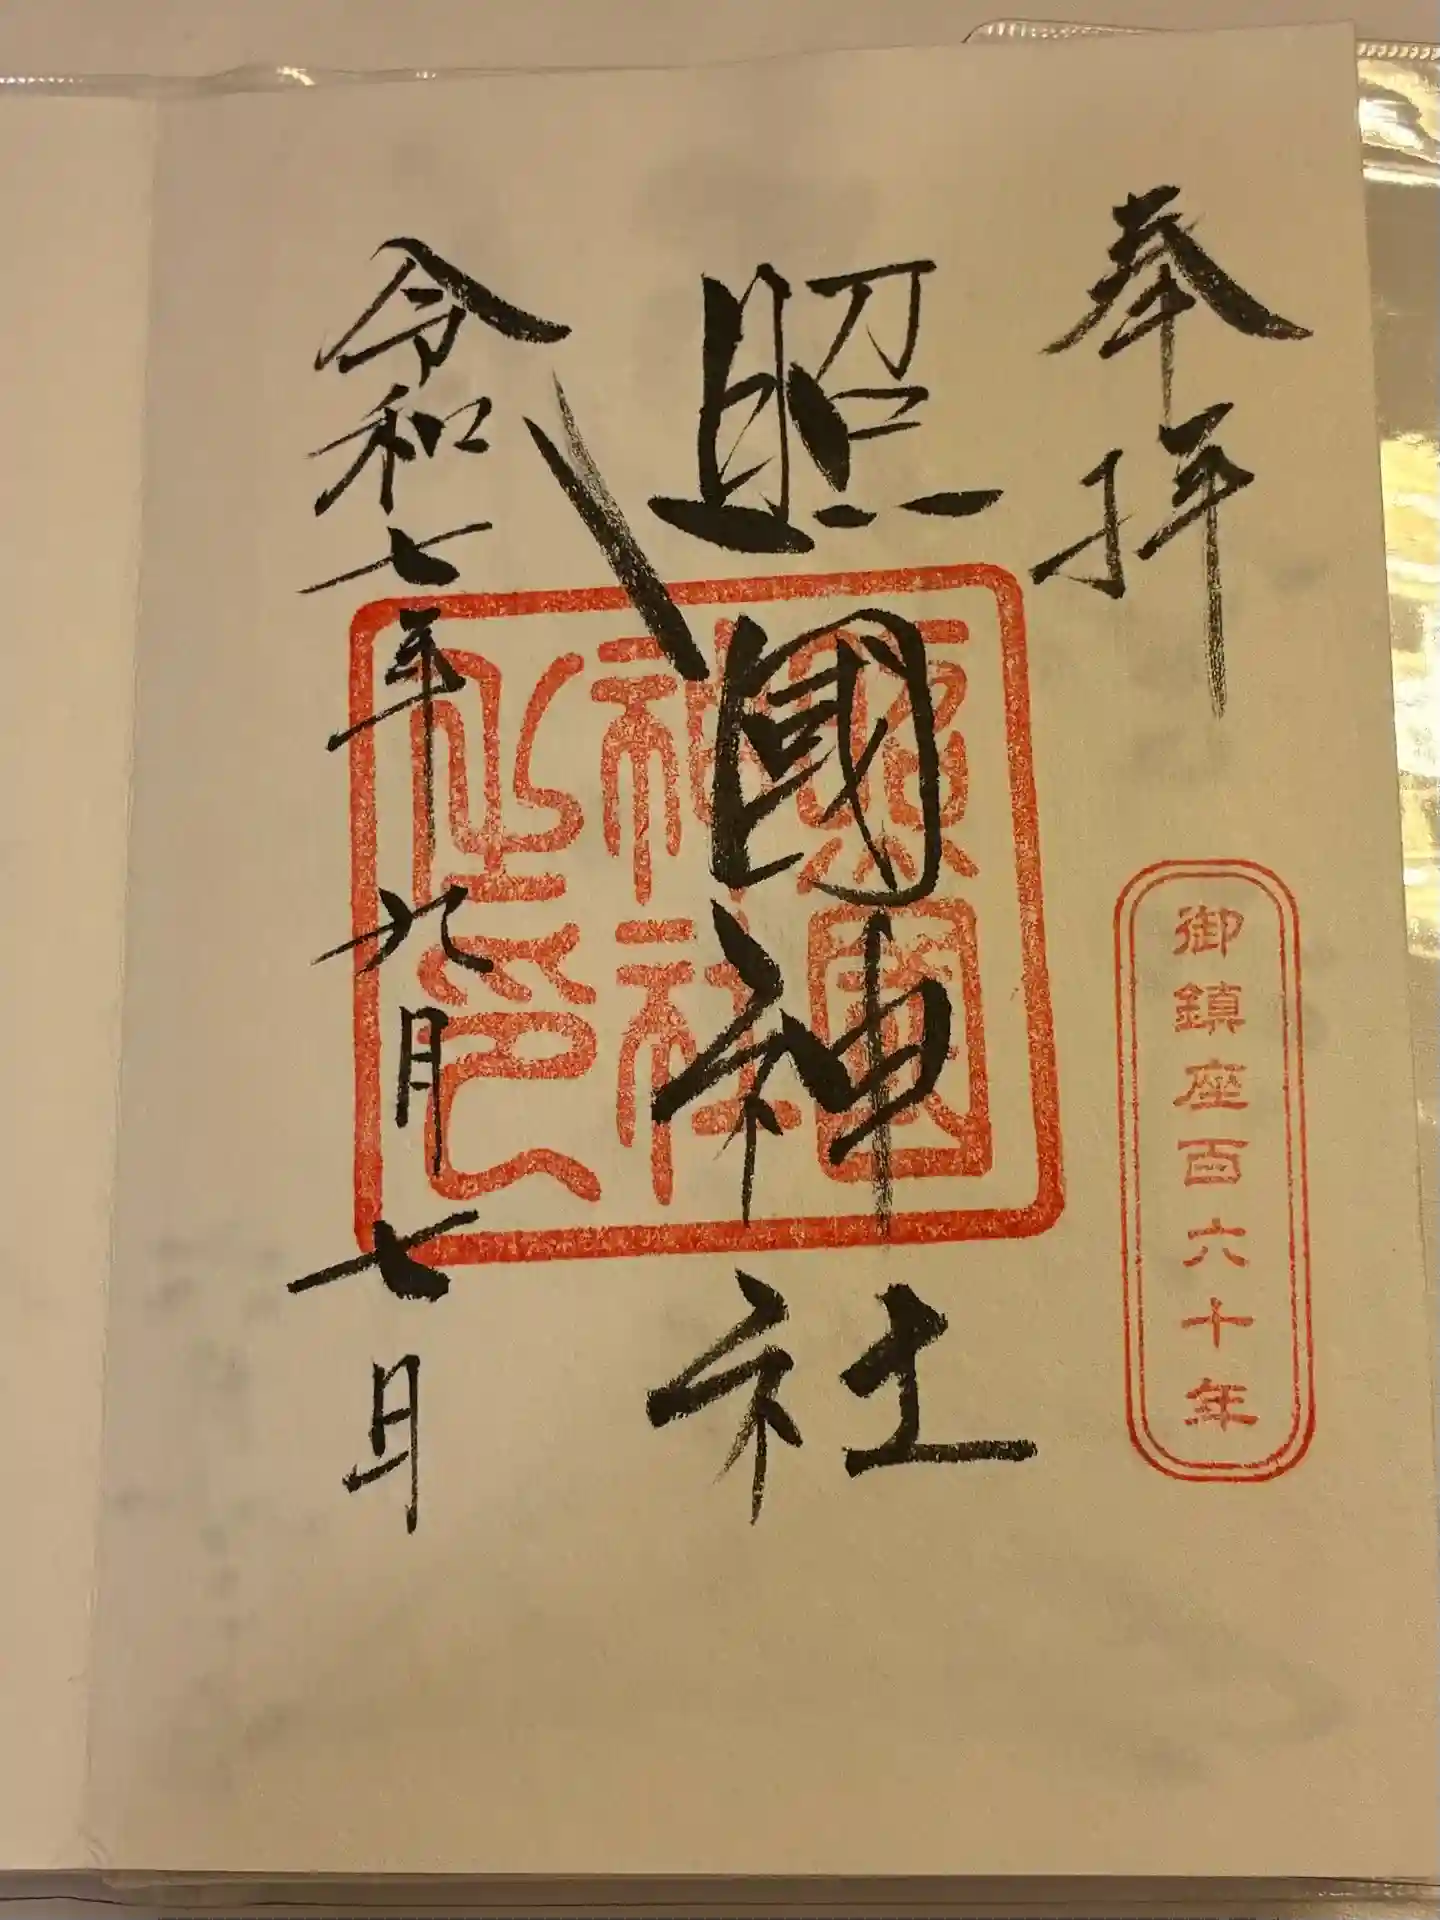 奉拝
御鎮座百六十年
照國神社
照國神社之印
令和七年九月七日